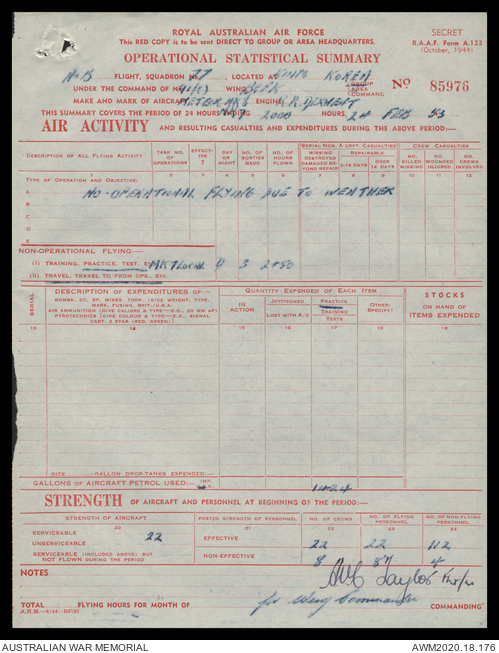 ROYAL AUSTRALIAN AIR FORCE
This RED COPY is to be sent DIRECT TO GROUP OR AREA HEADQUARTERS.
SECRET
R.A.A.F. Form A.123
(October, 1944)
OPERATIONAL STATISTICAL SUMMARY
FLIGHT, SQUADRON No. 77 LOCATED AT KIMPO KOREA
UNDER THE COMMAND OF No. 91(C) WING
GROUP
AREA
COMMAND
No 85976
MAKE AND MARK OF AIRCRAFT METEOR MK8 ENGINE R. DERWENT
THIS SUMMARY COVERS THE PERIOD OF 24 HOURS ENDING 2000 HOURS, FEB 53
AIR ACTIVITY AND RESULTING CASUALTIES AND EXPENDITURES DURING THE ABOVE PERIOD:—
DESCRIPTION OF ALL FLYING ACTIVITY
TASK No. OF OPERATIONS
EFFECTIVE ?
DAY OR NIGHT
NO. OF SORTIES MADE
NO. OF HOURS FLOWN
SERIAL NOS. A-CRFT CASUALTIES
MISSING DESTROYED DAMAGED BEYOND REPAIR
REPAIRABLE
0-14 DAYS
OVER 14 DAYS
CREW CASUALTIES
NO. KILLED MISSING
NO. WOUNDED INJURED
NO. CREWS INVOLVED
1 2 3 4 5 6 7 8 9 10 11 12
TYPE OF OPERATION OR OBJECTIVE:
A NO-OPERATIONAL FLYING DUE TO WEATHER
B
C
D
E
NON-OPERATIONAL FLYING—
(I) TRAINING, PRACTICE, TEST, 3
(II) TRAVEL, TRAVEL TO/FROM OPS., ETC.
SERIAL
DESCRIPTION OF EXPENDITURES OF—
BOMBS, DC, RP, MINES, TORP. (GIVE WEIGHT, TYPE,
MARK, FUSING, BRIT./U.S.A.)
AIR AMMUNITION (GIVE CALIBRE & TYPE—E.G., 20 MM AP)
PYROTECHNICS (GIVE COLOUR & TYPE—E.G., SIGNAL
CART. 2 STAR (RED, GREEN))
QUANTITY EXPENDED OF EACH ITEM
IN ACTION
JETTISONED
LOST WITH A/C
PRACTICE
TRAINING
TESTS
OTHER: SPECIFY:
STOCKS
ON HAND OF ITEMS EXPENDED
13 14 15 16 17 18 19
SIZE GALLON DROP-TANKS EXPENDED:—
GALLONS OF AIRCRAFT PETROL USED:— IMP.
STRENGTH OF AIRCRAFT AND PERSONNEL AT BEGINNING OF THE PERIOD:—
STRENGTH OF AIRCRAFT
POSTED STRENGTH OF PERSONNEL
NO. OF CREWS
NO. OF FLYING PERSONNEL
NO. OF NON-FLYING PERSONNEL
20 21 22 23 24
SERVICEABLE 22 EFFECTIVE 22 22 112
UNSERVICEABLE
SERVICEABLE (INCLUDED ABOVE) BUT
NOT FLOWN DURING THE PERIOD
NON-EFFECTIVE 8 4
NOTES
for Wing Commander
TOTAL FLYING HOURS FOR MONTH OF
COMMANDING
AUSTRALIAN WAR MEMORIAL
AWM2020.18.176